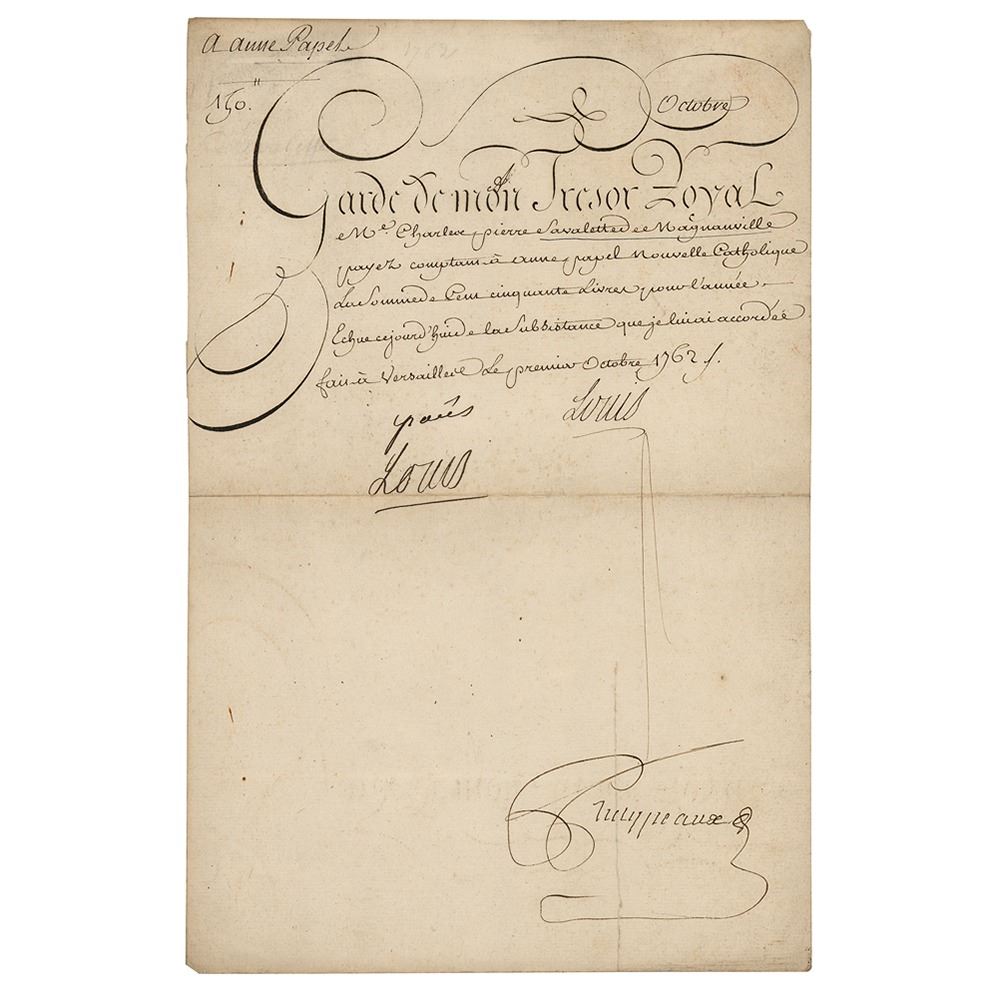 A anne Papel
150.# Octobre
Garde de mon Tresor Royal
Me. Charles pierre Savalette de Magnanville
payez comptant à anne papel Nouvelle Catholique
La Somme de Cent cinquante Livres pour l'année
Echue cejourd'huid e la Subsistance que je luiai accordée
fait à Versailles Le premier Octobre 1762 ./.
Louis
paiés
Louis
Phelypeaux